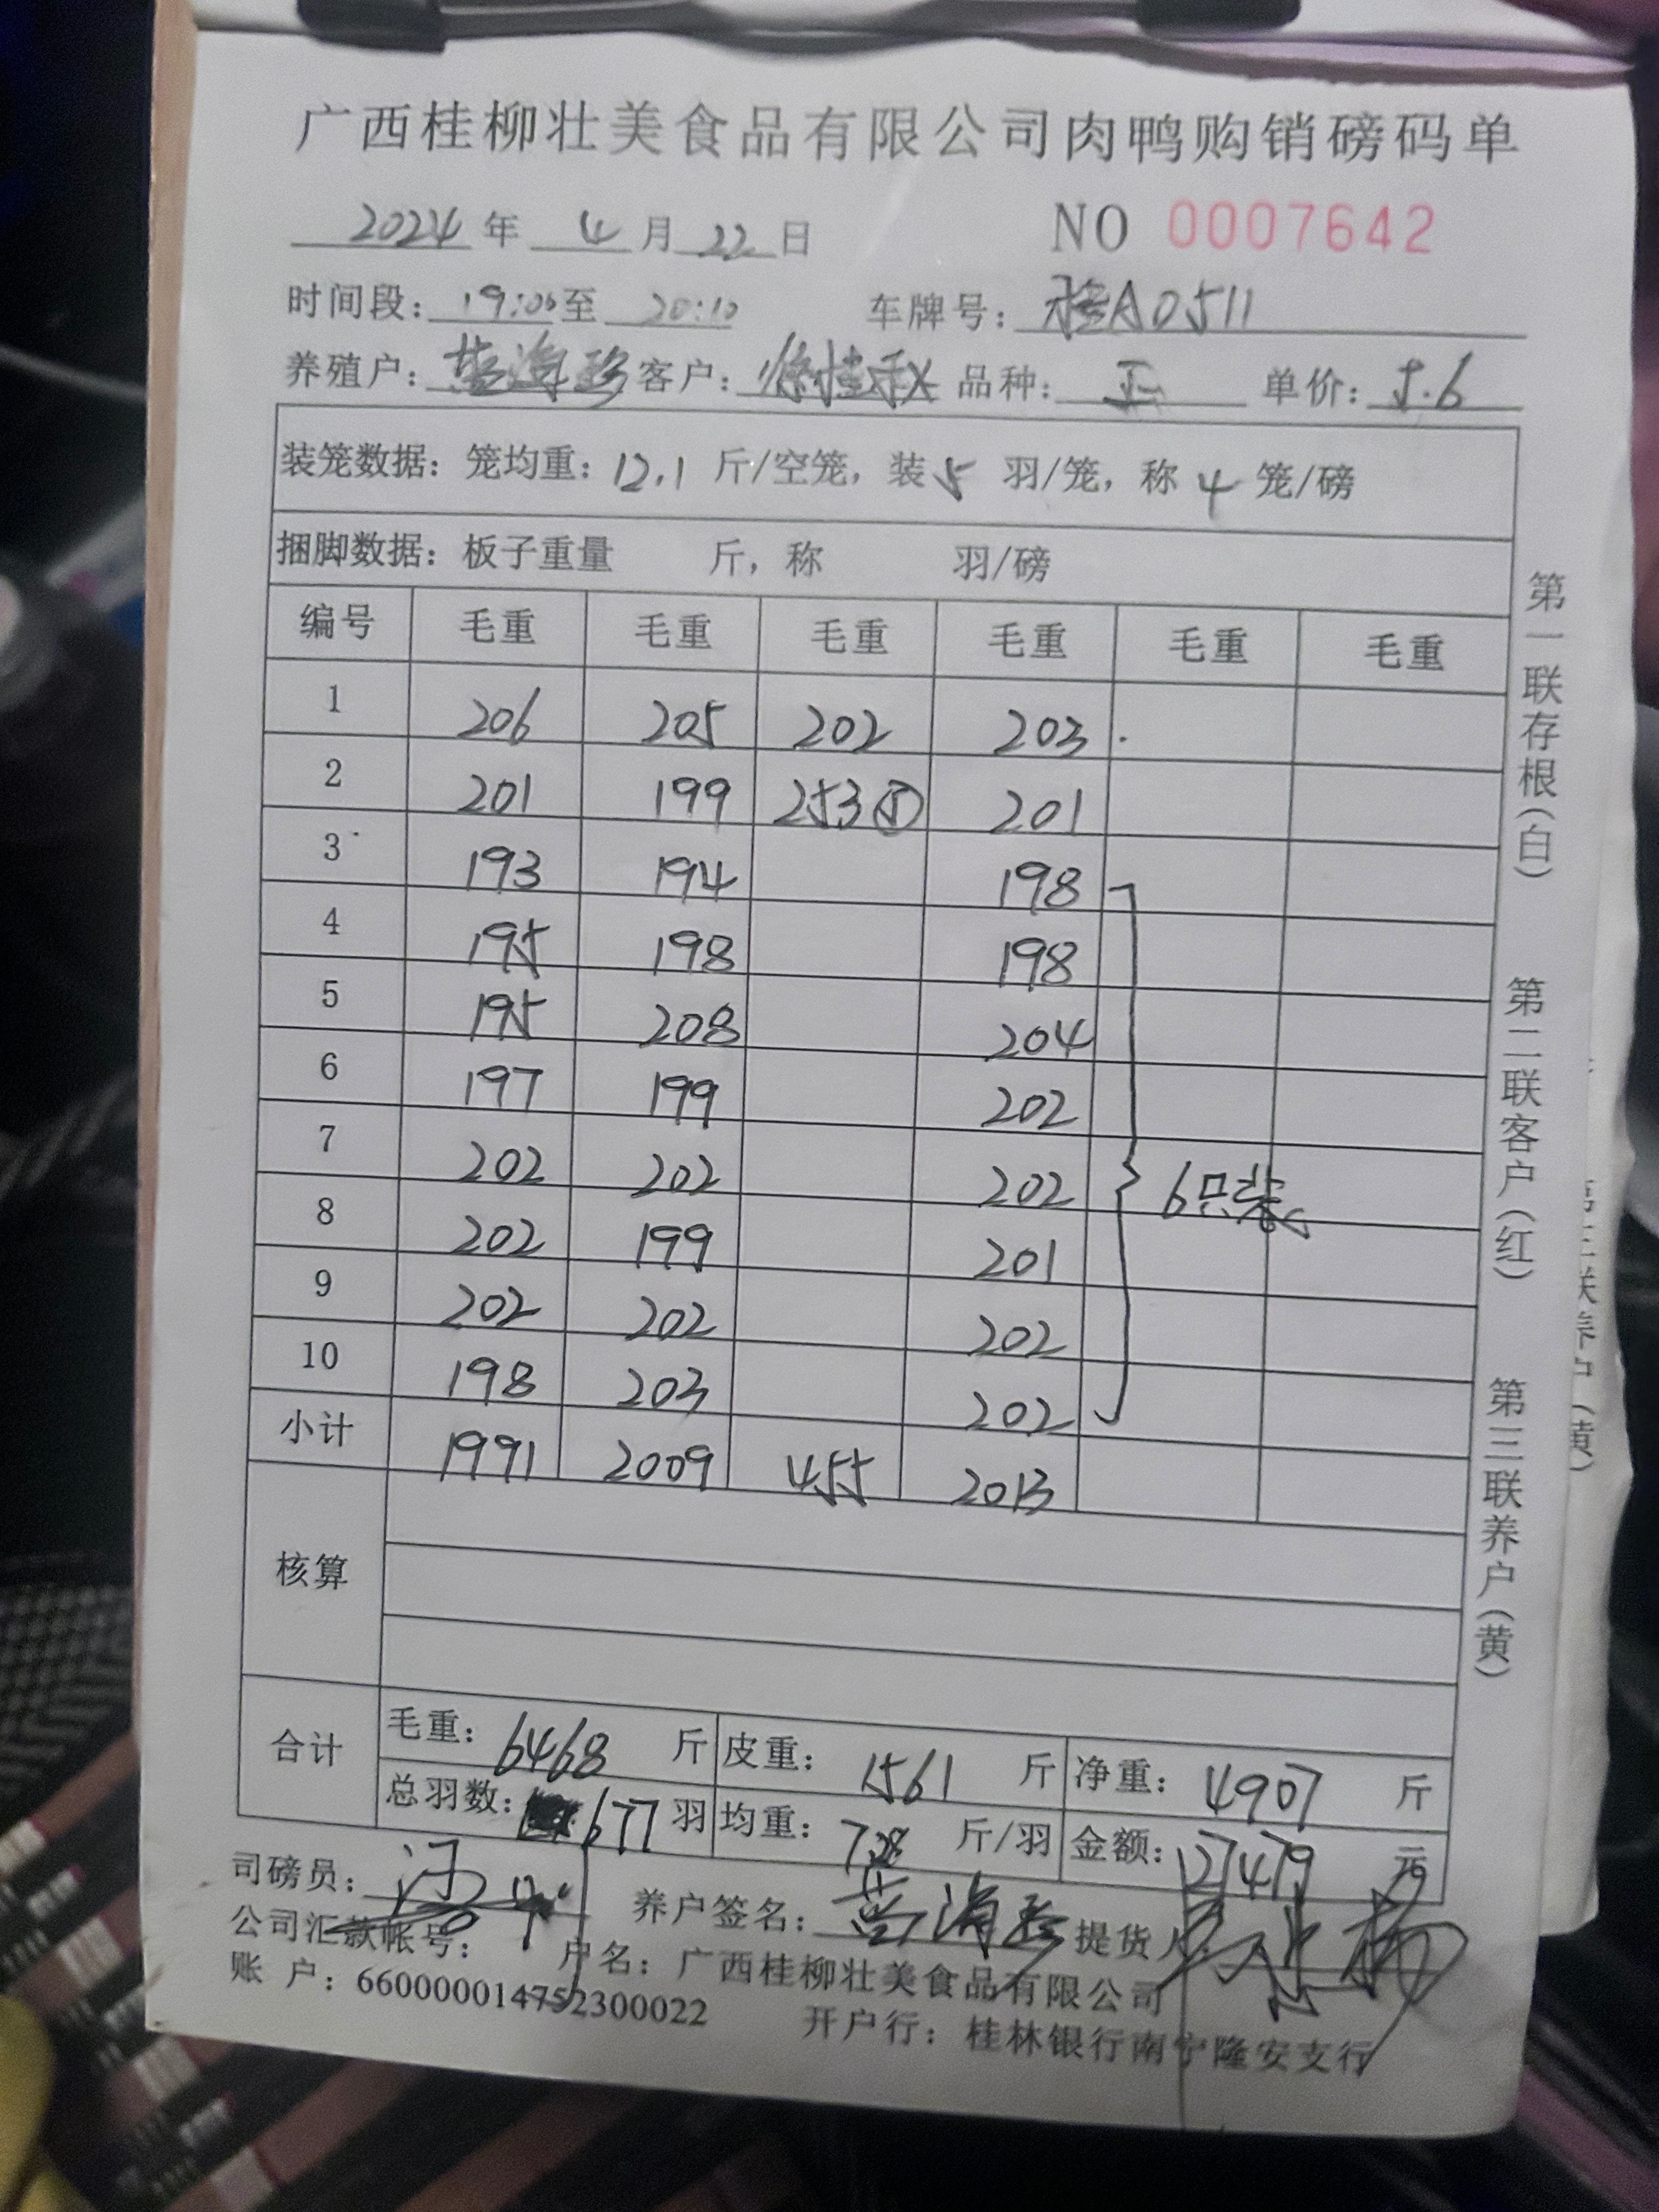 广西桂柳壮美食品有限公司肉鸭购销磅码单
2024年 4月22日 NO 0007642
时间段：19:00至 20:10 车牌号：桂A0511
养殖户：黄海珍 客户：徐桂秋 品种： 单价：5.6
装笼数据：笼均重：12.1 斤/空笼，装5 羽/笼，称4笼/磅
捆脚数据：板子重量 斤，称 羽/磅
编号 毛重 毛重 毛重 毛重 毛重 毛重
1 206 205 202 203
2 201 199 253⑤ 201
3 193 194 198
4 195 198 198
5 195 208 204
6 197 199 202
7 202 202 202 6只装
8 202 199 201
9 202 202 202
10 198 203 202
小计 1991 2009 455 2013
核算
合计 毛重：6468 斤 皮重：1561 斤 净重：4907 斤
总羽数：677羽 均重：7.28 斤/羽 金额：27479 元
司磅员： 养户签名：黄海珍 提货人：
公司汇款帐号： 户名：广西桂柳壮美食品有限公司
账 户：660000014752300022 开户行：桂林银行南宁隆安支行
第一联存根（白） 第二联客户（红） 第三联养户（黄）